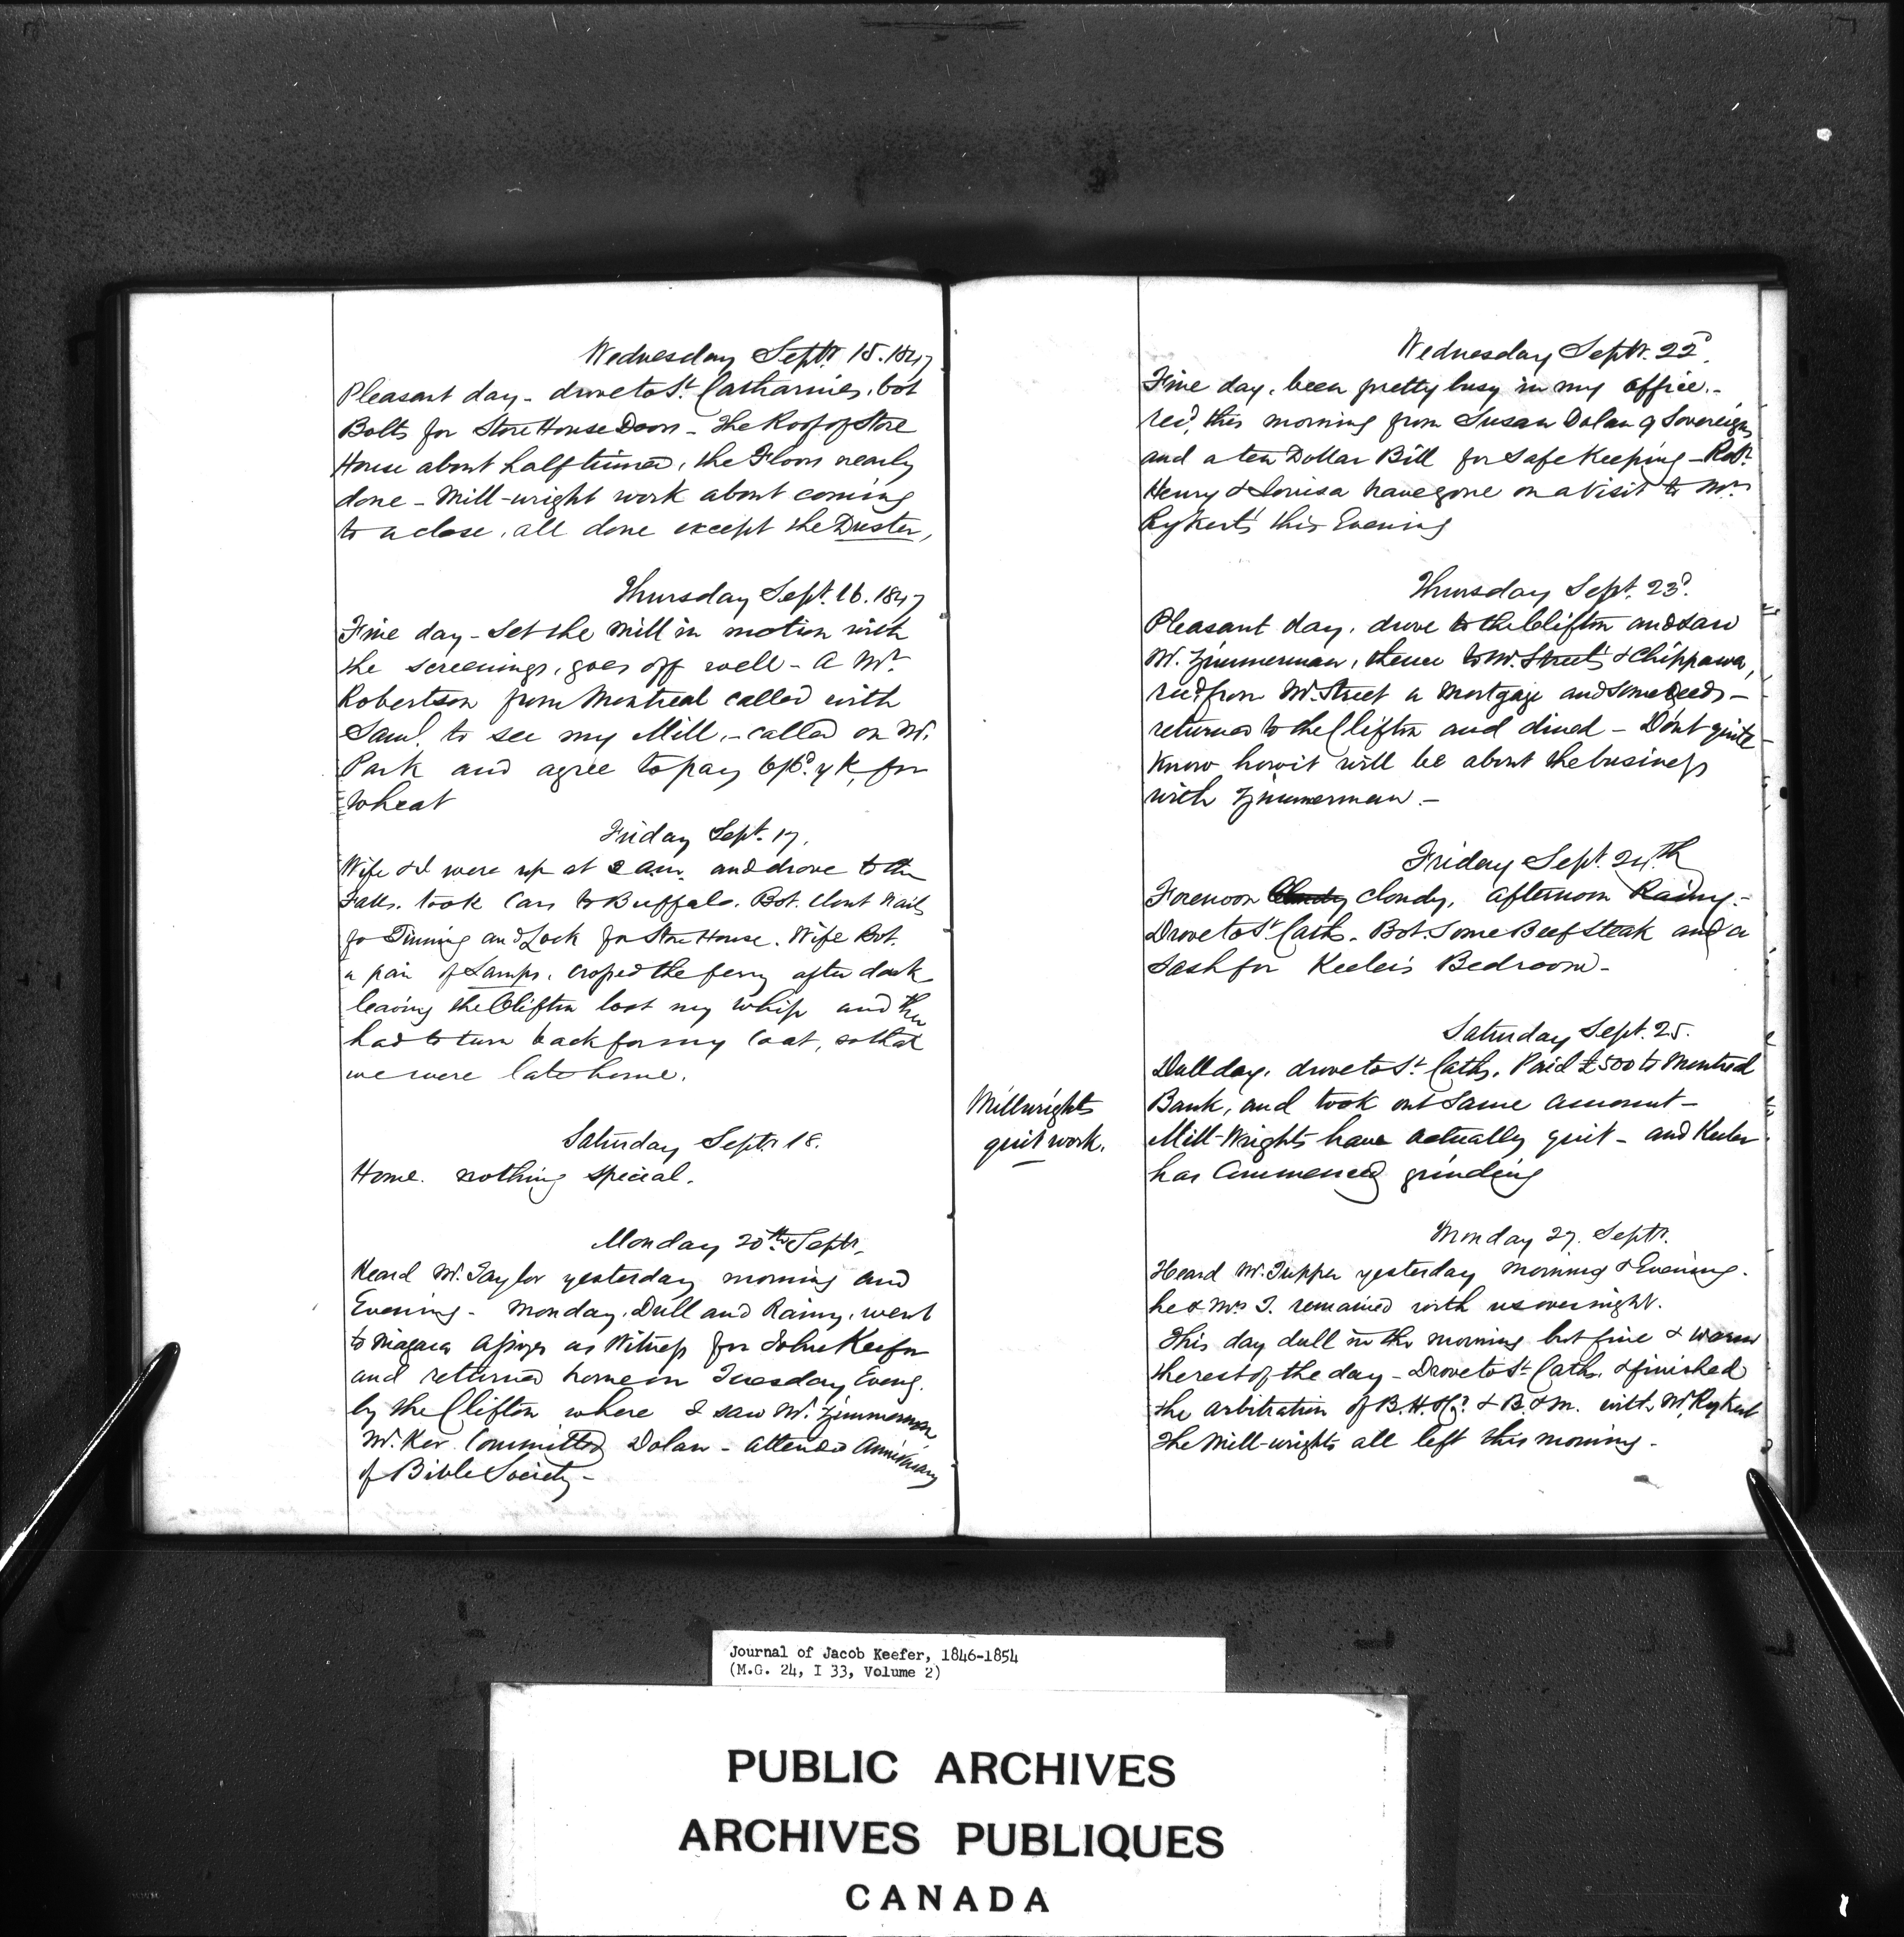 Wednesday Septr. 15. 1847
Pleasant day - drove to St. Catharines, bot
Bolts for Store House Doors - The Roof of Store
House about half tinned, the Floors nearly
done - Mill-wright work about coming
to a close, all done except the Duster,
Thursday Sept. 16. 1847
Fine day - Set the Mill in motion with
the screenings, goes off well - A Mr.
Robertson from Montreal called with
Saml. to see my Mill, - called on Mr.
Park and agree to pay for
Wheat
Friday Sept. 17.
Wife & I were up at 2 a.m. and drove to the
Falls. took Cars to Buffalo. Bot. Clout Nails
for Tinning and Lock for Store House. Wife Bot.
a pair of Lamps. crossed the ferry after dark
leaving the Clifton lost my whip and then
had to turn back for my Coat, so that
we were late home.
Saturday Septr. 18.
Home. nothing special.
Monday 20th. Septr.
Heard Mr. Taylor yesterday morning and
Evening - Monday, Dull and Rainy, went
to Niagara Assizes as Witness for John Keefer
and returned home on Tuesday Eveng.
by the Clifton where I saw Mr. Zimmerman
Mr. Ker. Committed Dolan - attended Anniversary
of Bible Society -
Wednesday Septr. 22d.
Fine day, been pretty busy in my office. -
recd. this morning from Susan Dolan 9 Sovereigns
and a ten Dollar Bill for safe Keeping - Robt.
Henry & Louisa have gone on a Visit to Mr.
Rykert's this Evening
Thursday Sept. 23d.
Pleasant day, drove to the Clifton and saw
Mr. Zimmerman, thence to Mr. Street's & Chippawa,
recd. from Mr. Street a Mortgage and some Deeds -
returned to the Clifton and dined - Don't quite
Know how it will be about the business
with Zimmerman. -
Friday Sept. 24th
Forenoon Cloudy cloudy, afternoon Rainy. -
Drove to St. Cath. Bot. Some Beef Steak and a
Sash for Keeler's Bedroom -
Saturday Sept. 25.
Dull day, drove to St. Caths. Paid £500 to Montreal
Millwrights
quit work.
Bank, and took out same amount -
Mill-Wrights have actually quit - and Keeler
has Commenced grinding
Monday 27. Septr.
Heard Mr. Tupper yesterday Morning & Evening.
he & Mrs T. remained with us overnight.
This day dull in the morning but fine & warm
the rest of the day - Drove to St. Caths. & finished
the arbitration of B. H. & Co. & B. & M. with Mr. Rykert
The Mill-wrights all left this morning -
Journal of Jacob Keefer, 1846-1854
(M.G. 24, I 33, Volume 2)
PUBLIC ARCHIVES
ARCHIVES PUBLIQUES
CANADA